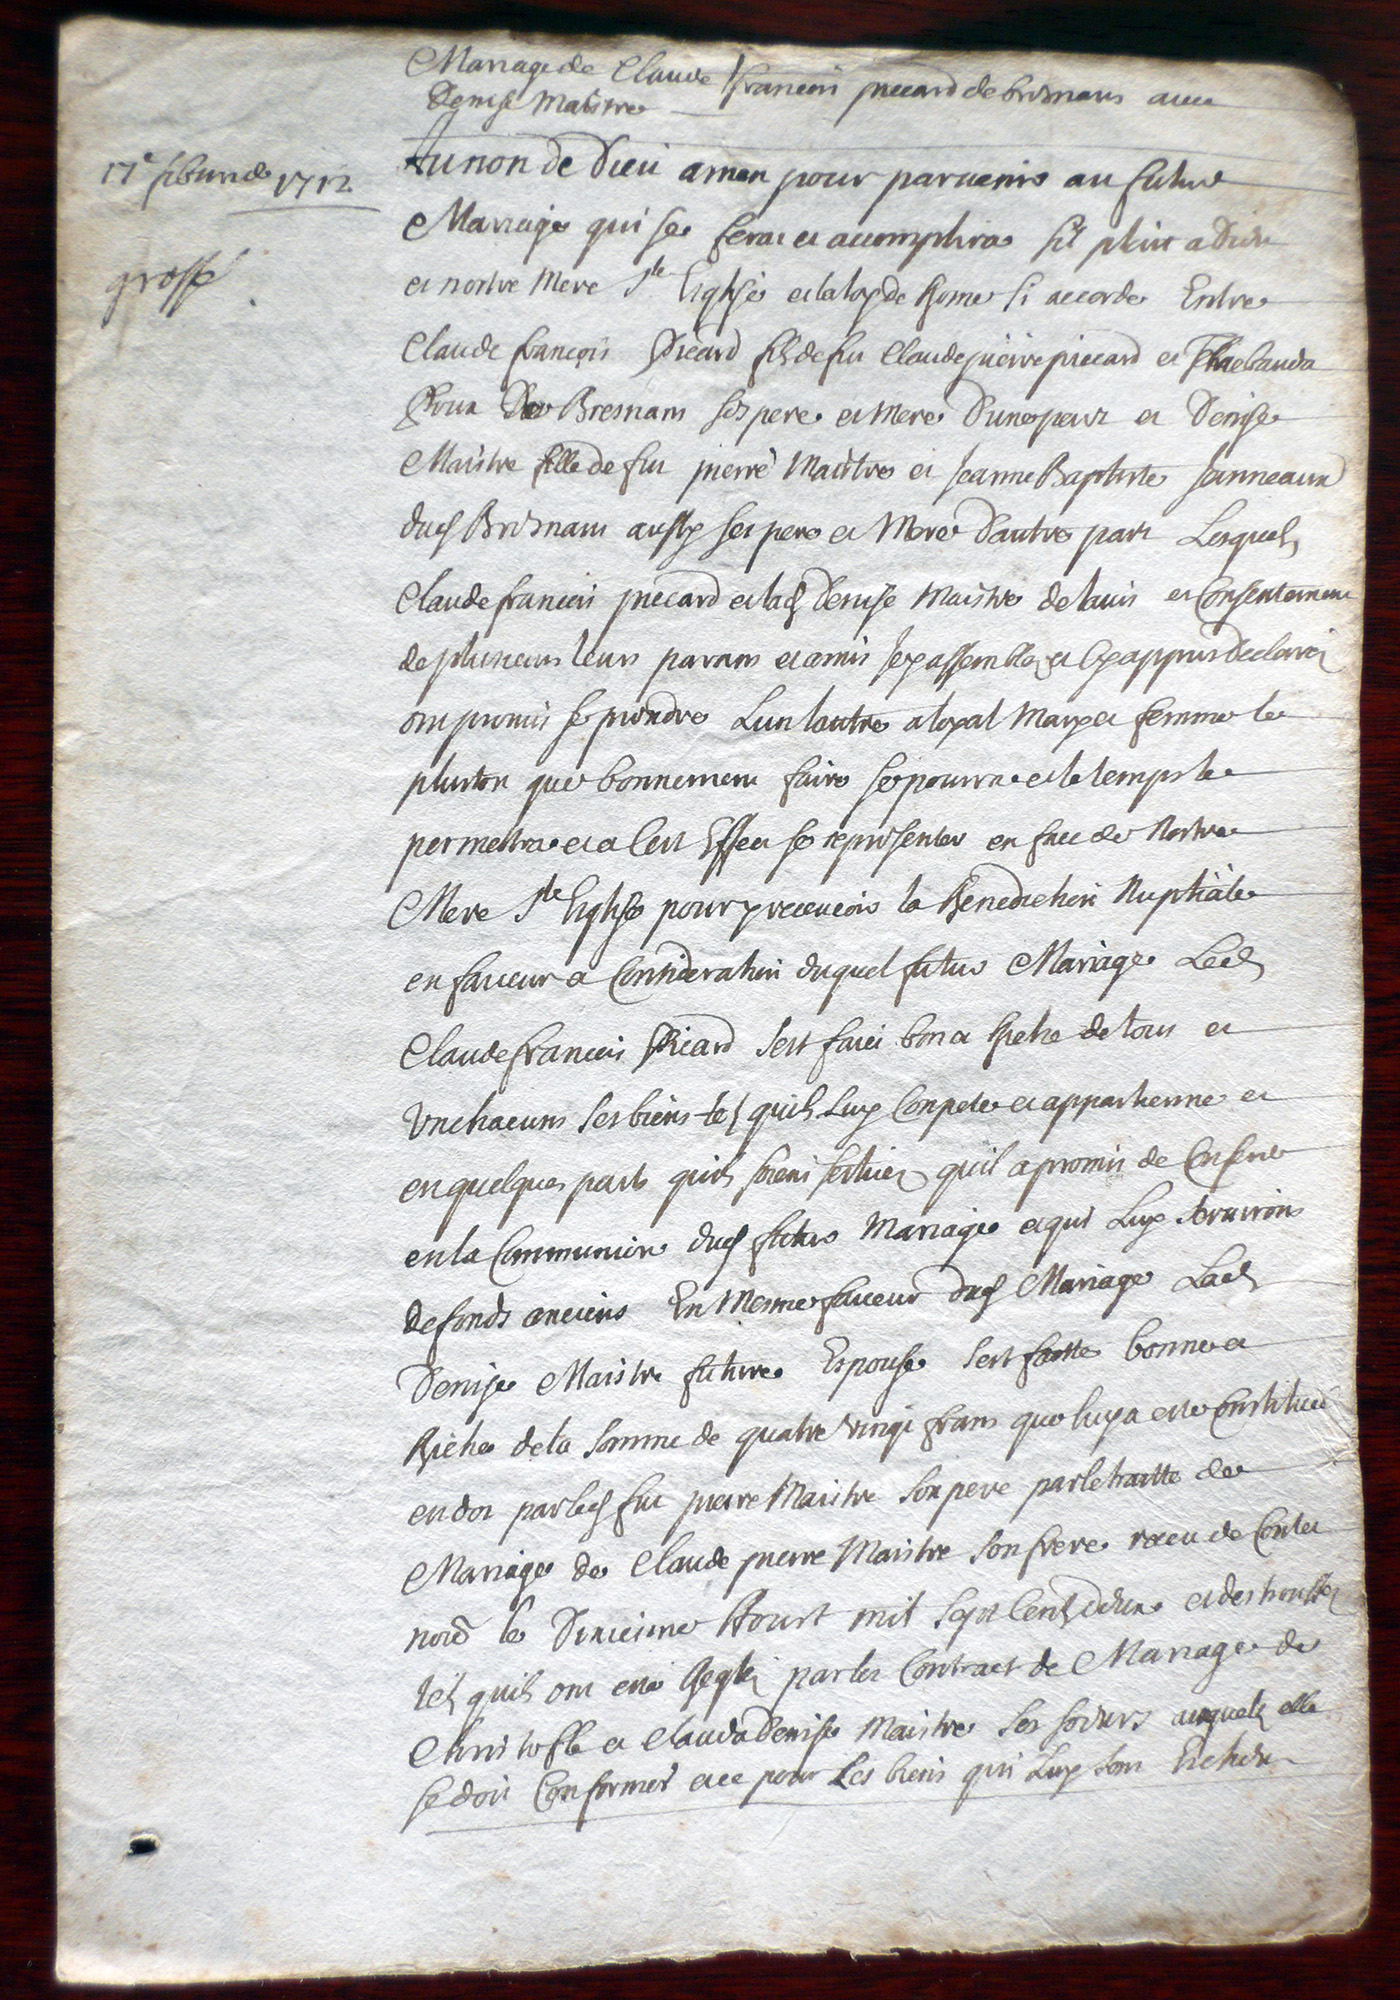 Mariage de Claude francois piccard de bresnans avec
Denise Maistre
17e febvrier 1712
grossé
Au non de Dieu amen pour parvenir au futur
Mariage qui se ferat et accomplira sil plait a Dieu
et nostre Mere Ste Eglise et la loy de Rome si accorde Entre
Claude françois Picard fils de fut Claude pierre piccard et Thiebauda
Roux De Bresnans ses pere et Mere Dune part et Denise
Maistre fille de fut pierre Maistre et Jeanne Baptiste Janneaux
dud Bresnans aussy ses pere et Mere Dautre part Lesquels
Claude francois piccard et lad Denise Maistre de lavis et Consentement
de plusieurs leurs parans et amis icy assemblez et Cy appres declarez
ont promis se prendre Lun lautre a loyal Mary et femme le
pluston que bonnement faire se pourra et le temps le
permettra et a Cest Effect se representer en face de Nostre
Mere Ste Eglise pour y recevoir la Benediction Nuptiale
en faveur et Consideration duquel futur Mariage Led
Claude francois Picard sest faict bon et Riche de tous et
Unchacuns ses biens tels quils Luy Conpete et appartienne et
en quelques parts quils soient scituez quil a promis de Confere
en la Communion dud futur Mariage et qui Luy serviront
de fonds anciens En Mesme faveur dud Mariage Lad
Denise Maistre future Espouse sest faitte bonne et
Riche de la somme de quatre vingt frans que luy a este Constitué
en dot par led fut pierre Maistre son pere par le traitte de
Mariage de Claude pierre Maistre son frere receu de
nore le Dixieme Aoust mil sept Cent et des troussel
tels quils ont esté Reglez par les Contract de Mariage de
Christofle et Clauda Denise Maistre ses soeurs ausquels elle
se doit Conformer et ce pour Les biens qui Luy son